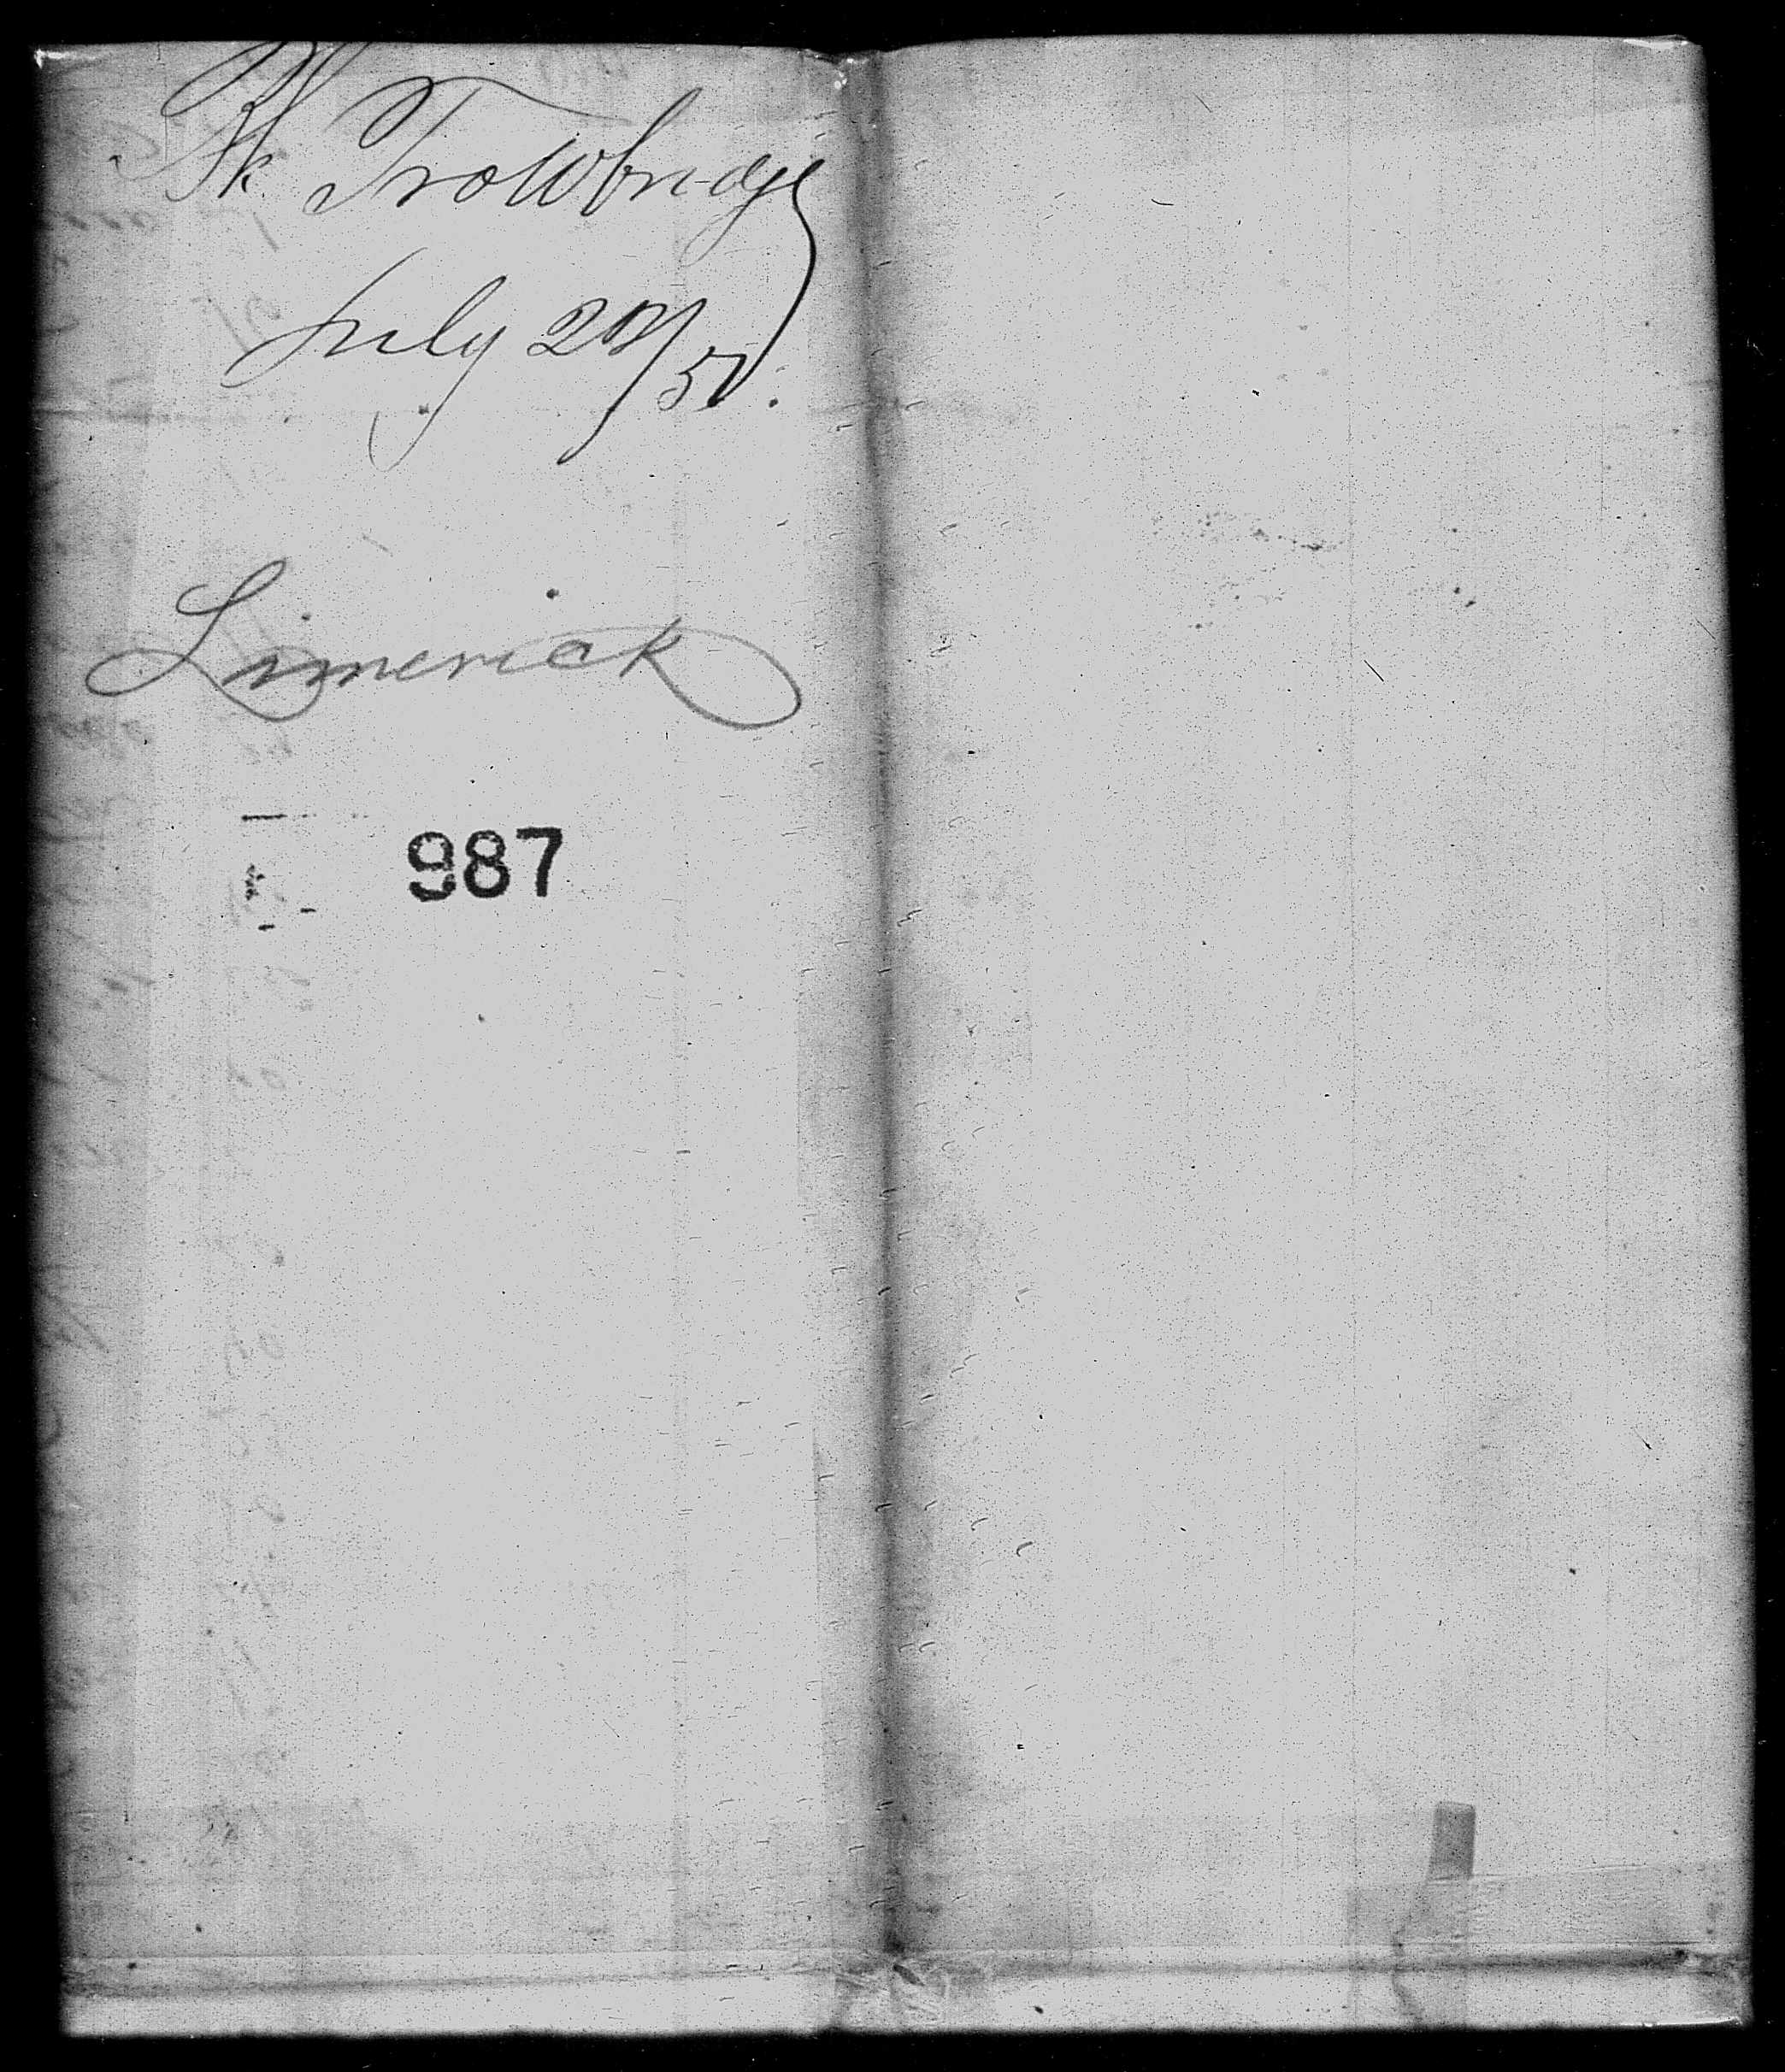 Bk Trowbridge
July 20/50.
Limerick
987